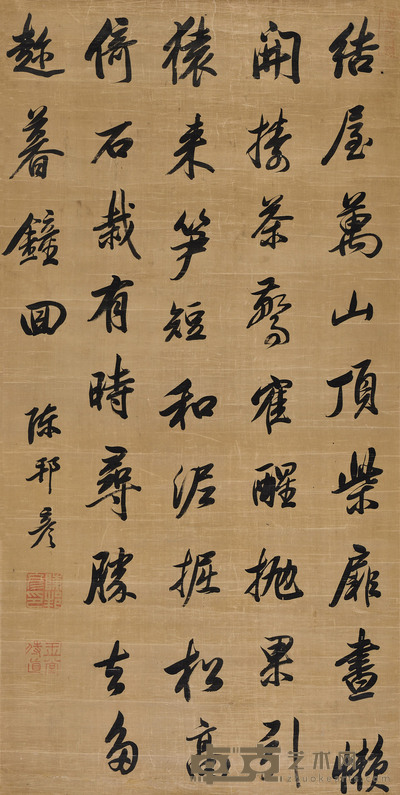 結屋萬山頂柴扉晝懒
開搥茶驚雀醒抛果引
猿来笋短和泥掘松高
倚石栽有時尋勝去多
趂暮鐘回
陳邦彦
卓克艺术网